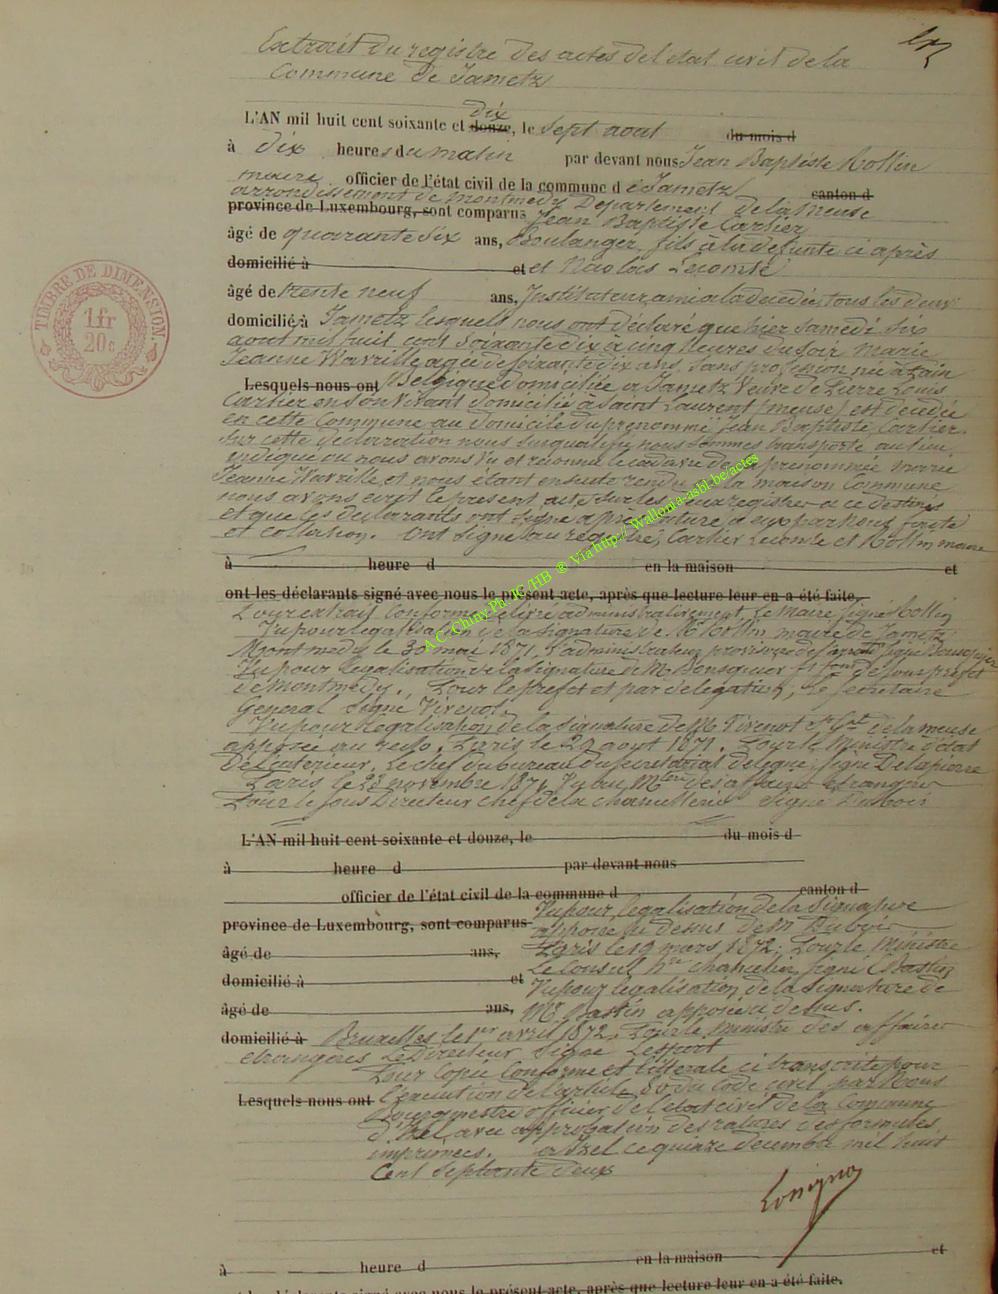 Extrait du registre des actes de l'état civil de la
Commune de Jametz
L'AN mil huit cent soixante et douze, dix, le sept aout du mois d
à dix heures du matin par devant nous Jean Baptiste Rollin
maire officier de l'état civil de la commune de Jametz canton d
arrondissement de montmedy Departement de la Meuse
province de Luxembourg, sont comparus Jean Baptiste Cartier
âgé de quarante six ans, Boulanger, fils à la defunte ci après
domicilié à et et Nicolas Lecomte
âgé de trente neuf ans, Instituteur, ami a la decedée, tous les deux
domicilié à Jametz lesquels nous ont déclaré que hier samedi six
aout mil huit cent soixante dix à cinq heures du soir Marie
Jeanne Warville agée de soixante dix ans, sans profession née à
Lesquels nous ont Belgique domiciliée a Jametz Veuve de Pierre Louis
Cartier en son vivant domicilié à Saint Laurent (meuse) est decedée
en cette Commune au domicile du prenommé Jean Baptiste Cartier.
Sur cette déclaration nous susqualifié nous sommes transporté au lieu
indiqué ou nous avons vu et reconnu le cadavre de la prenommée Marie
Jeanne Warville et nous étant ensuite rendu à la maison Commune
nous avons ecrit le present acte sur les deux registres a ce destinés
et que les declarants ont signé après lecture a eux par nous faite
et collation. Ont signé au registre, Cartier Lecomte et Rollin maire
à heure d en la maison et
ont les déclarants signé avec nous le présent acte, après que lecture leur en a été faite.
Pour extrait Conforme delivré administrativement Le Maire signé Rollin
Vu pour legalisation de la signature de Mr Rollin maire de Jametz
Montmedy le 30 mai 1871, L'administrateur provisoire de signé
Vu pour legalisation de la signature de M. de sous prefet
de Montmedy. Pour le prefet et par delegation, Le Secretaire
General Signé Vivenot.
Vu pour legalisation de la signature de M. Vivenot de la meuse
apposée au Paris le 29 aout 1871. Pour le Ministre
De l'interieur. Le chef du bureau du secretariat delegué, signé Delapierre
Paris le 23 novembre 1871, Vu au Mtère des affaires etrangères
Pour le sous Directeur chef de la chancellerie Signé Dubois
L'AN mil huit cent soixante et douze, le du mois d
à heure d par devant nous
officier de l'état civil de la commune d canton d
Vu pour legalisation de la signature
province de Luxembourg, sont comparus apposée ci dessus de Mr Dubois
âgé de ans, Paris le 19 mars 1872; Pour le Ministre
Le Consul hre chancelier, signé Bastin
domicilié à et Vu pour legalisation de la signature de
âgé de ans, Mr Bastin apposée ci dessus.
domicilié à Bruxelles le 1er avril 1872. Pour le Ministre des affaires
etrangères Le Directeur Signé
Pour Copie Conforme et litterale ci transcrite pour
Lesquels nous ont l'execution de l'article 80 du Code civil par Nous
Bourgmestre officier de l'état civil de la Commune
d'Izel, avec approbation des ratures des formules
imprimées. a Izel ce quinze decembre mil huit
Cent septante deux
à heure d en la maison et
les déclarants signé avec nous le présent acte, après que lecture leur en a été faite.
TIMBRE DE DIMENSION.
1 fr
20 c
A C - Chiny Ph. JC/HB ® Via http:// Wallonia-asbl-be/actes